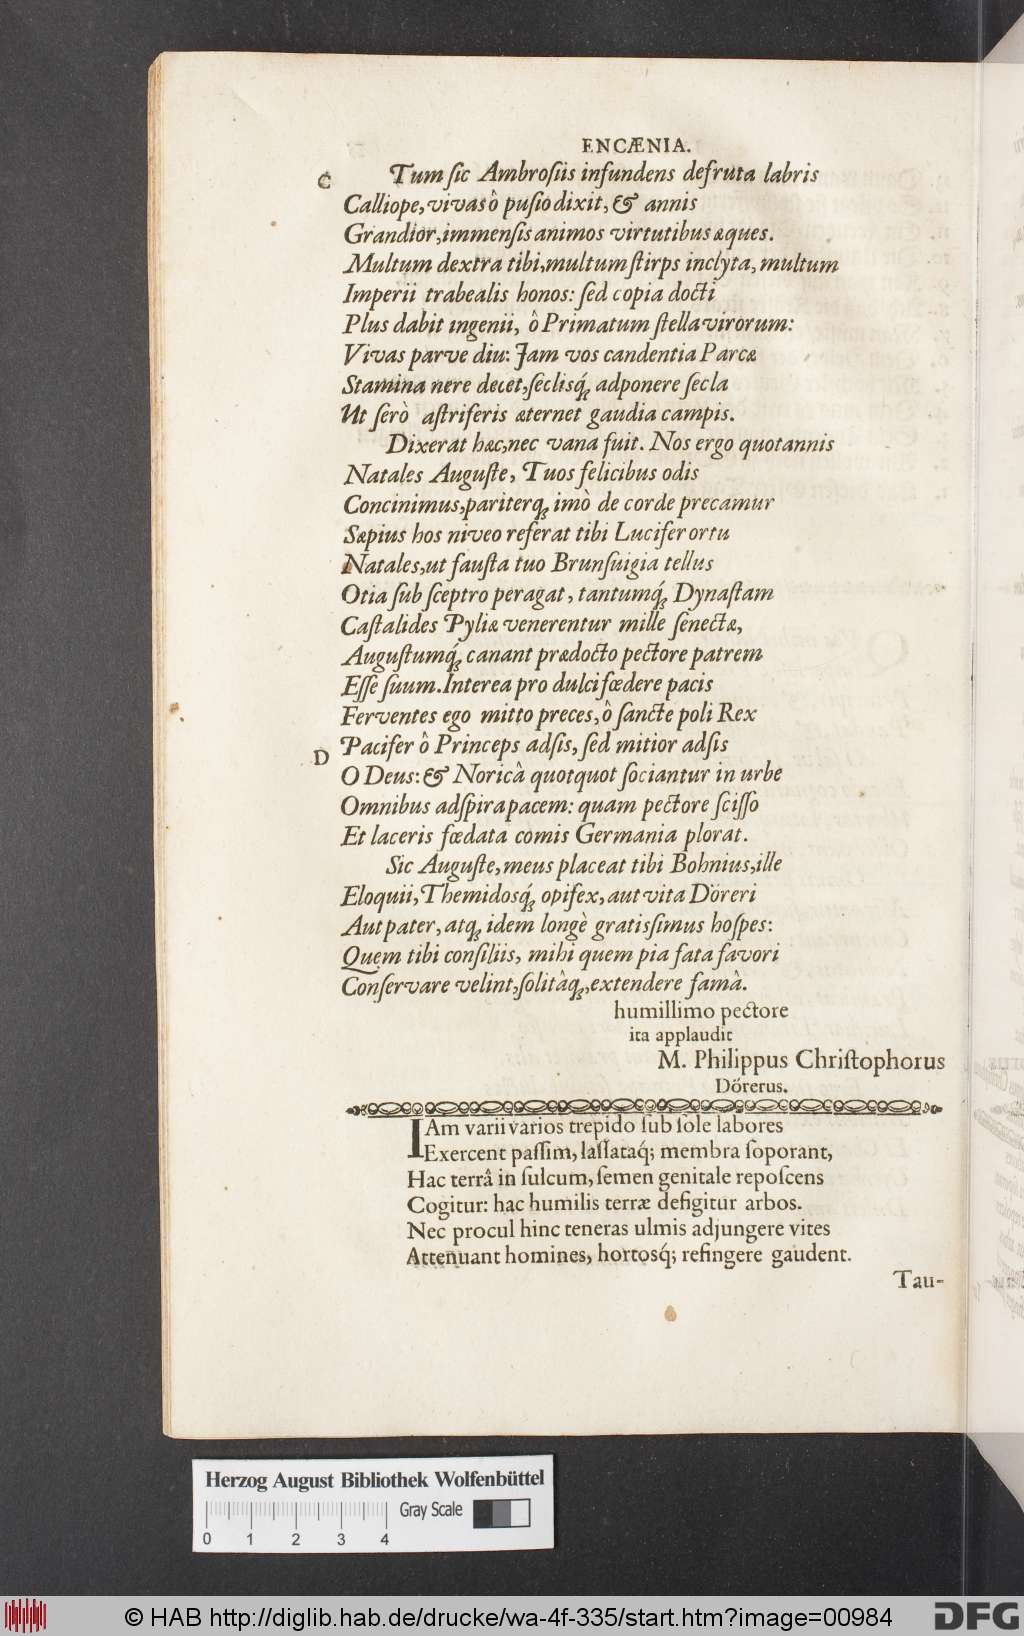 ENCÆNIA.
C Tum ſic Ambroſiis infundens defruta labris
Calliope, vivas ô puſio dixit, & annis
Grandior, immenſis animos virtutibus æques.
Multum dextra tibi, multum ſtirps inclyta, multum
Imperii trabealis honos: ſed copia docti
Plus dabit ingenii, ô Primatum ſtella virorum:
Vivas parve diu: Jam vos candentia Parcæ
Stamina nere decet, ſeclisq́ꝫ adponere ſecla
Ut ſerò aſtriferis æternet gaudia campis.
Dixerat hæc, nec vana fuit. Nos ergo quotannis
Natales Auguſte, Tuos felicibus odis
Concinimus, pariterqꝫ imò de corde precamur
Sæpius hos niveo referat tibi Lucifer ortu
Natales, ut fauſta tuo Brunſuigia tellus
Otia ſub ſceptro peragat, tantumq́ꝫ Dynaſtam
Caſtalides Pyliæ venerentur mille ſenectæ,
Auguſtumq́ꝫ canant prædocto pectore patrem
Eſſe ſuum. Interea pro dulci fœdere pacis
Ferventes ego mitto preces, ô ſancte poli Rex
D Pacifer ô Princeps adſis, ſed mitior adſis
O Deus: & Noricâ quotquot ſociantur in urbe
Omnibus adſpira pacem: quam pectore ſciſſo
Et laceris fœdata comis Germania plorat.
Sic Auguſte, meus placeat tibi Bohnius, ille
Eloquii, Themidosq́ꝫ opifex, aut vita Döreri
Aut pater, atqꝫ idem longè gratisſimus hoſpes:
Quem tibi conſiliis, mihi quem pia fata favori
Conſervare velint, ſolitâqꝫ, extendere famâ.
humillimo pectore
ita applaudit
M. Philippus Chriſtophorus
Dörerus.
IAm varii varios trepido ſub ſole labores
Exercent paſſim, laſſataq́; membra ſoporant,
Hac terrâ in ſulcum, ſemen genitale repoſcens
Cogitur: hac humilis terræ defigitur arbos.
Nec procul hinc teneras ulmis adjungere vites
Attenuant homines, hortosq́; refingere gaudent.
Tau-
Herzog August Bibliothek Wolfenbüttel
Gray Scale
0 1 2 3 4
© HAB http://diglib.hab.de/drucke/wa-4f-335/start.htm?image=00984
DFG